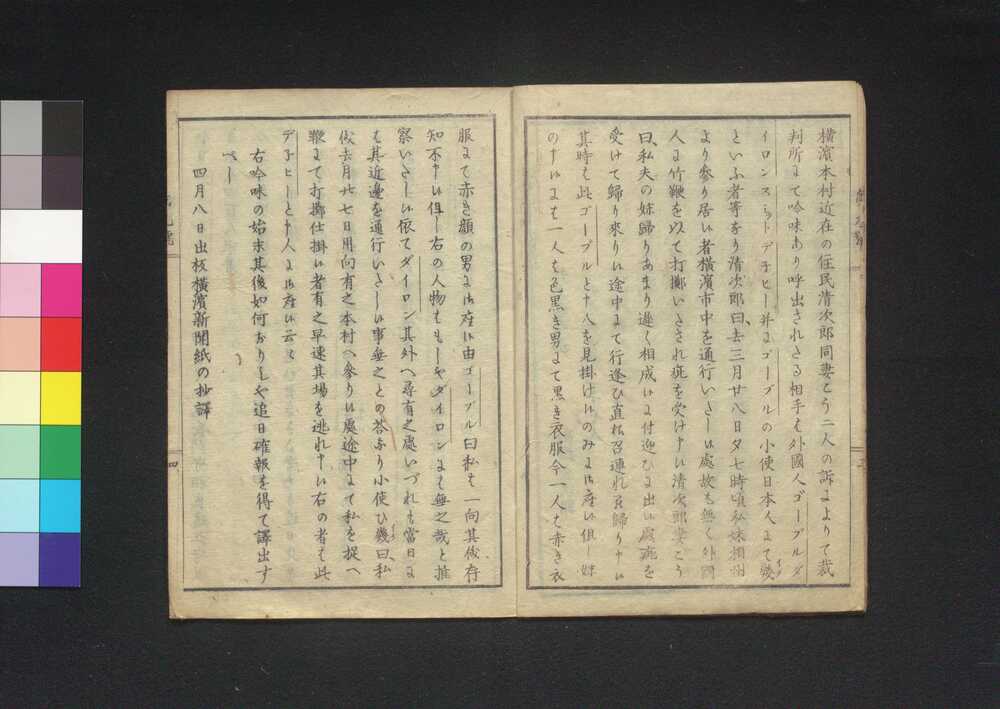 横濱本村近在の住民清次郎同妻こう二人の訴によりて裁
判所にて吟味あり呼出されたる相手は外國人ゴーブルダ
イロンスミットデ子ヒー并にゴーブルの小使日本人にて幾
といふ者等なり清次郎曰、去三月廿八日夕七時頃私妹相州
より参り居い者横濱市中を通行いたしい處故も無く外國
人に竹鞭を以て打擲いたされ疵を受け申い清次郎妻こう
曰、私夫の妹歸りあまり遲く相成いに付迎ひに出い處疵を
受けて歸り來りい途中にて行逢ひ直ね召連れ罷歸り申い
其時は此ゴーブルと申人を見掛けいのみに御座い但し妹
の申いには一人は色黒き男にて黒き衣服今一人は赤き衣
服にて赤き顔の男に御座い由ゴーブル曰私は一向其儀存
知不申い但し右の人物はもしやダイロンにては無之哉と推
察いたしい依てダイロン其外へ尋有之處いづれも當日に
は其近邊を通行いたしい事無之との答なり小使ひ幾曰、私
儀去月廿七日用向有之本村へ参りい處途中にて私を捉へ
鞭にて打擲仕掛い者有之早速其場を逃れ申い右の者は此
デ子ヒーと申人に御座い云々
右吟味の始末其後如何なりしや追日確報を得て譯出す
べし
四月八日出板横濱新聞紙の抄譯
四